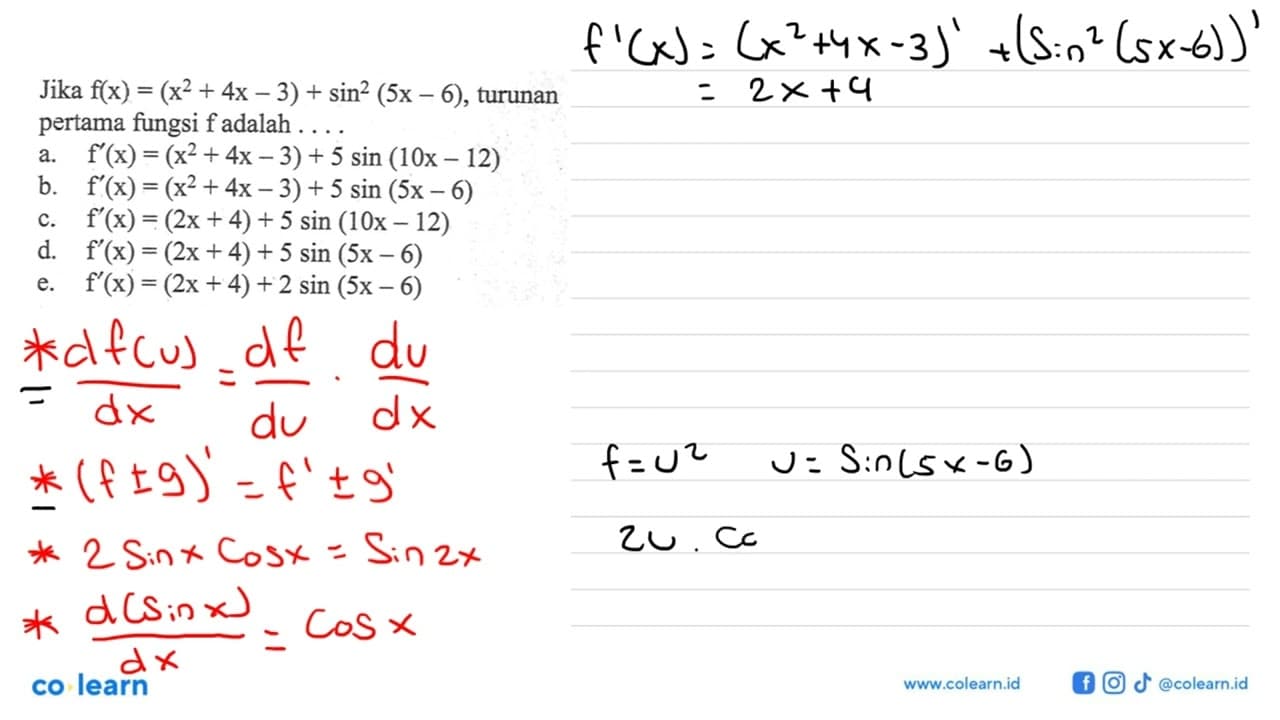 Jika f(x) = (x² + 4x – 3) + sin² (5x – 6), turunan
pertama fungsi f adalah . . . .
a. f′(x) = (x² + 4x – 3) + 5 sin (10x – 12)
b. f′(x) = (x² + 4x – 3) + 5 sin (5x – 6)
c. f′(x) = (2x + 4) + 5 sin (10x – 12)
d. f′(x) = (2x + 4) + 5 sin (5x – 6)
e. f′(x) = (2x + 4) + 2 sin (5x – 6)
* df(u)/dx = df/du . du/dx
* (f ± g)' = f' ± g'
* 2 Sin x Cos x = Sin 2x
* d(Sin x)/dx = Cos x
f'(x) = (x² + 4x - 3)' + (Sin² (5x-6))'
= 2x + 4
f = u² u = Sin(5x-6)
2u . Co
co learn
www.colearn.id
@colearn.id